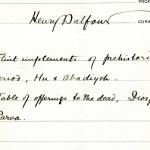 PROF
Henry Balfour
CURA
Flint implements of prehistori
eriod, Hu & Abadiyeh.
Table of offerings to the dead, Dios
Parva.